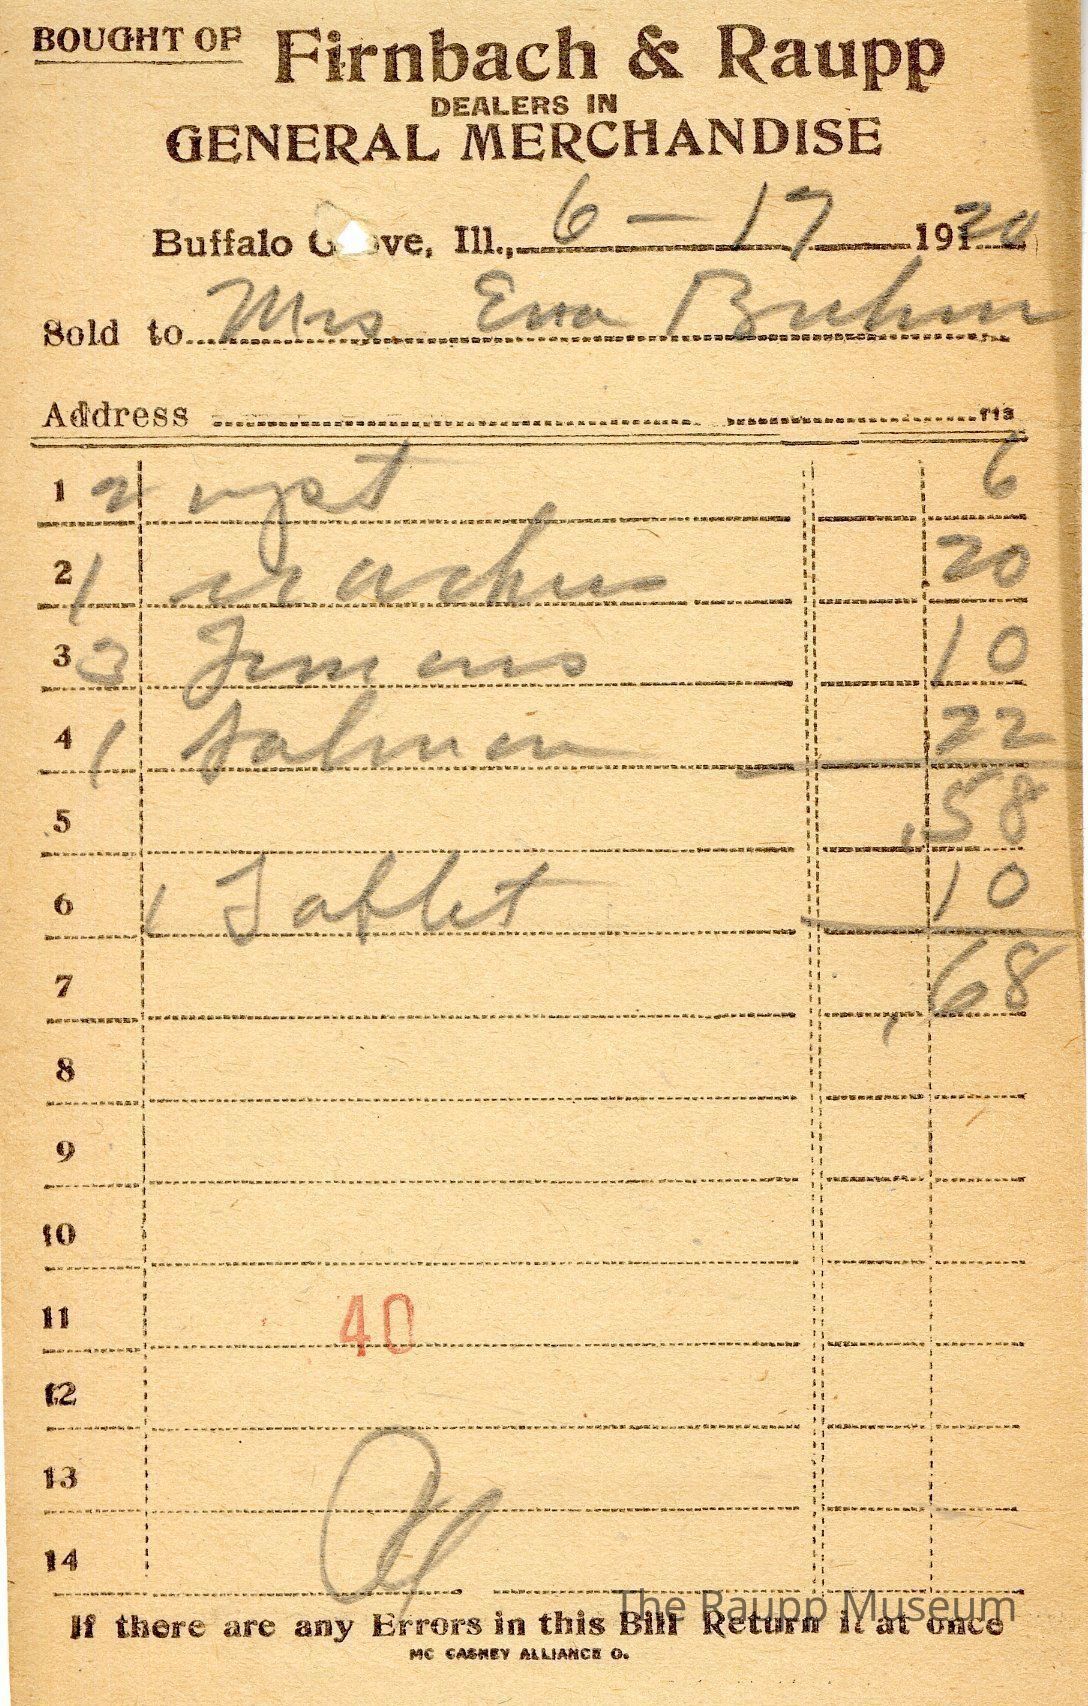 BOUGHT OF Firnbach & Raupp
DEALERS IN
GENERAL MERCHANDISE
Buffalo G ve, Ill., 6 - 17 1920
Sold to Mrs Emma Buhm
Address
1 2 yst 6
2 1 crackers 20
3 3 Lemons 10
4 1 Salmon 22
5 .58
6 1 Tablet 10
7 .68
8
9
10
11 40
12
13
14
If there are any Errors in this Bill Return it at once
MC CASKEY ALLIANCE O.
The Raupp Museum